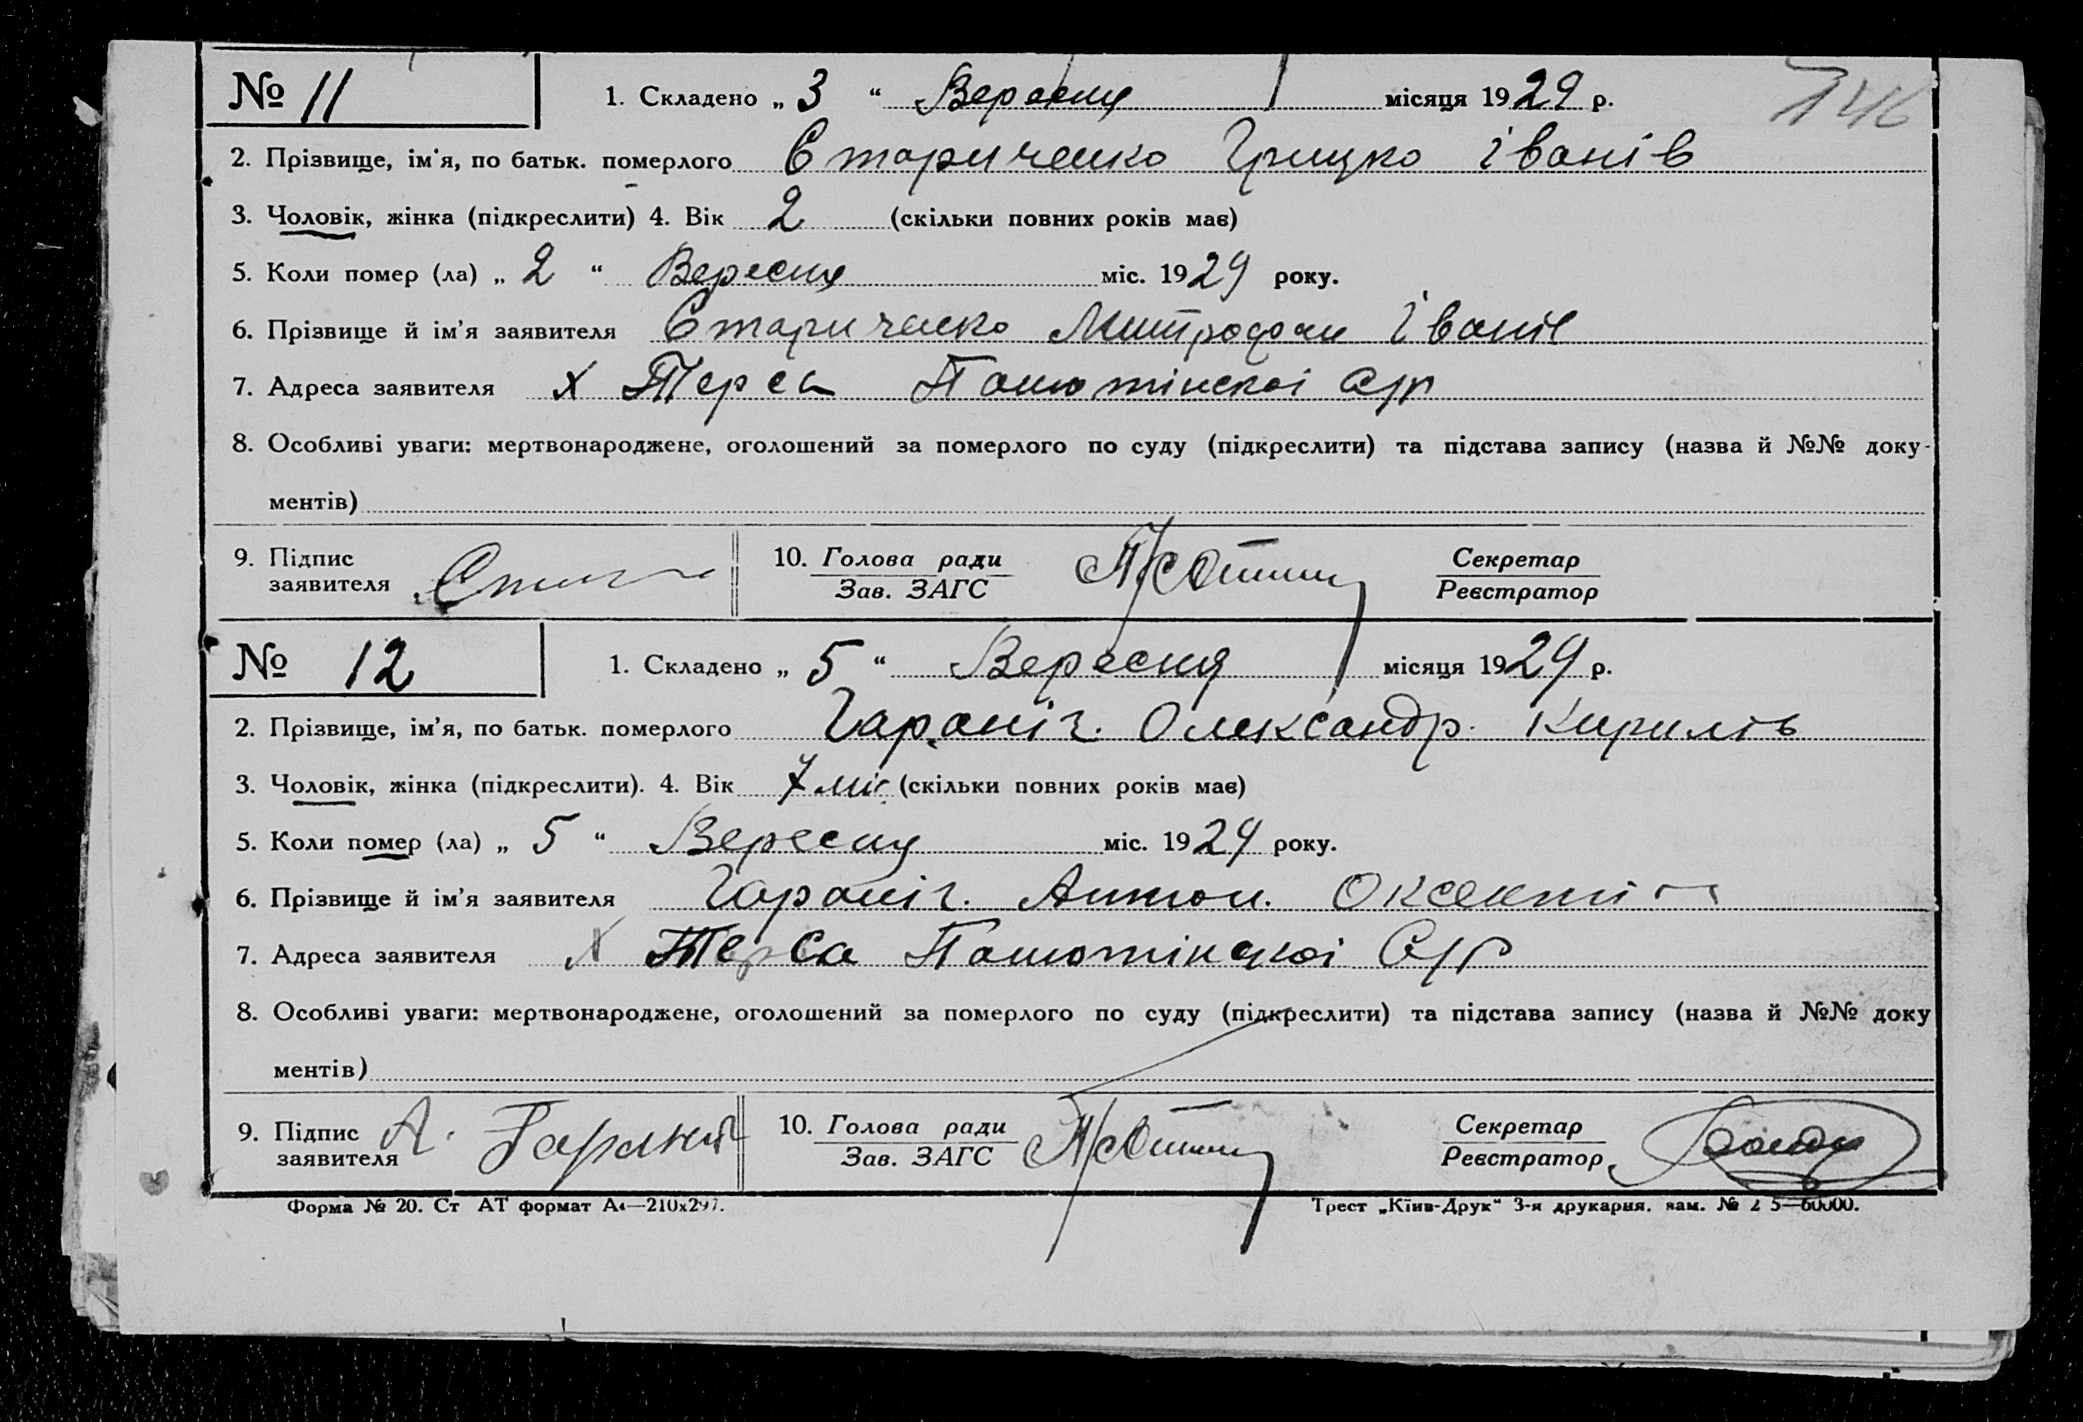 № 11 1. Складено „ 3 “ Вересня місяця 1929 р. 146
2. Прізвище, ім'я, по батьк. померлого Стариченко Грицко Іванів
3. Чоловік, жінка (підкреслити) 4. Вік 2 (скільки повних років має)
5. Коли помер (ла) „ 2 “ Вересня міс. 1929 року.
6. Прізвище й ім'я заявителя Стариченко Митрофан Іванів
7. Адреса заявителя х Терса Панютінскоі С/р
8. Особливі уваги: мертвонароджене, оголошений за померлого по суду (підкреслити) та підстава запису (назва й №№ доку-
ментів)
9. Підпис заявителя 10. Голова ради Секретар
Зав. ЗАГС Реєстратор
№ 12 1. Складено „ 5 “ Вересня місяця 1929 р.
2. Прізвище, ім'я, по батьк. померлого Гараніч. Олександр. Кирилів
3. Чоловік, жінка (підкреслити). 4. Вік 7 міс (скільки повних років має)
5. Коли помер (ла) „ 5 “ Вересня міс. 1929 року.
6. Прізвище й ім'я заявителя Гараніч. Антон. Оксентів
7. Адреса заявителя Х Терса Панютінскоі С/р
8. Особливі уваги: мертвонароджене, оголошений за померлого по суду (підкреслити) та підстава запису (назва й №№ доку
ментів)
9. Підпис заявителя А. 10. Голова ради Секретар
Зав. ЗАГС Реєстратор
Форма № 20. Ст АТ формат А4—210х297. Трест „Київ-Друк“ 3-я друкарня. зам. №